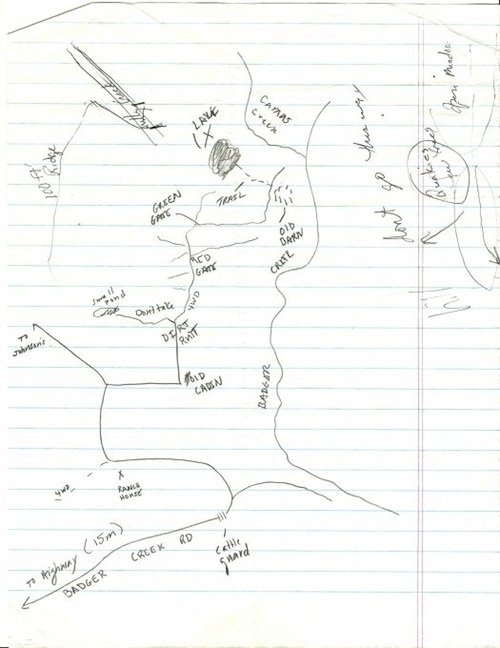 LAKE
X
CAMAS
Creek
dont go this way
Quakies
Open Meadow
100 Ft
Ridge
GREEN
GATE
TRAIL
OLD
BARN
CREEK
RED
GATE
4WD
Small
Pond
Dont take
DIRT
RUTT
TO
Johnson's
OLD
CABIN
BADGER
4WD
X
RANCH
HOUSE
TO Highway (15m)
BADGER CREEK RD
Cattle
Guard